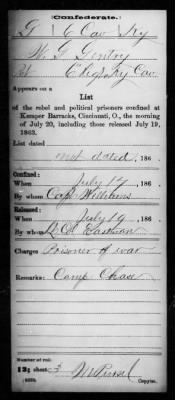 Confederate.
G 6 Cav Ky
W. G. Gentry
Appears on a
List
of the rebel and political prisoners confined at
Kemper Barracks, Cincinnati, O., the morning
of July 20, including those released July 19,
1863.
List dated
not dated, 186 .
Confined:
When July 17, 186 .
By whom Capt Williams
Released:
When July 19, 186 .
By whom Eastman
Charges Prisoner of war
Remarks: Camp Chase
Number of roll:
sheet
Copyist.